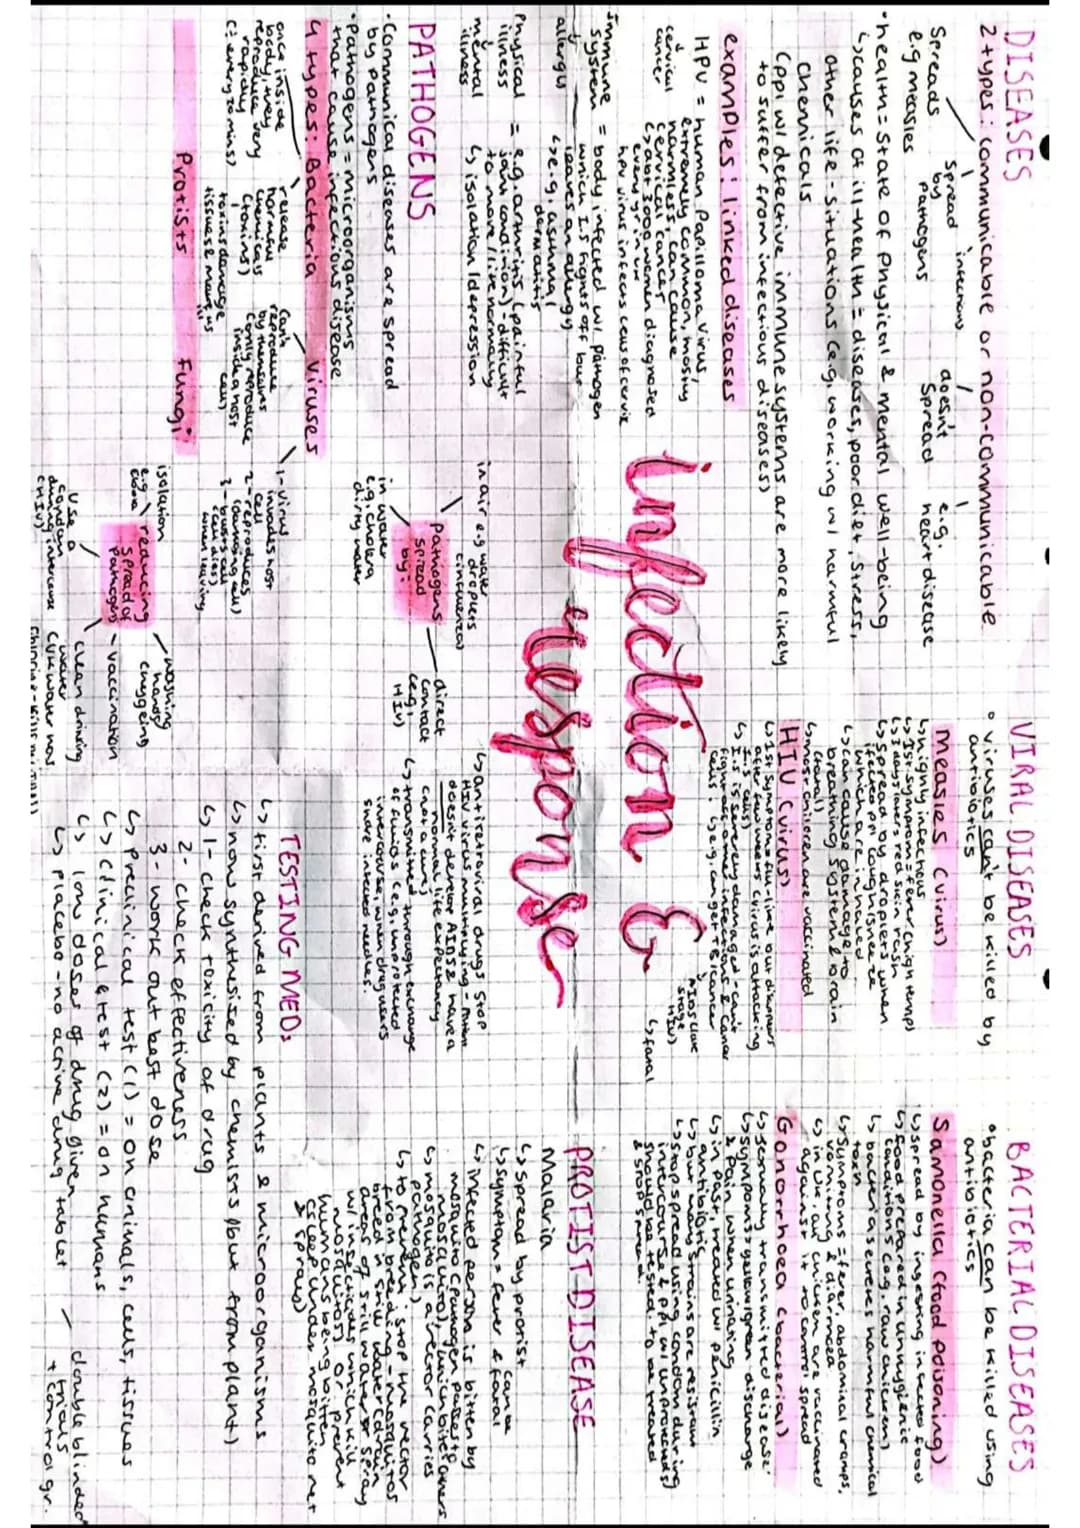 DISEASES
2 types: communicable or non-communicable
Spreads
e.g measles
spread
by
pathogens
doesn't
spread
e.g.
heart disease
• health = state of physical & mental well-being
↳ causes of ill-health = diseases, poor diet, stress,
other life-situations (e.g. working w/ harmful
chemicals
(ppl w/ defective immune systems are more likely
to suffer from infectious diseases)
examples: linked diseases
HPV = human papilloma virus,
extremely common, mostly
harmless can cause
cervical cancer
↳ abt 3000 women diagnosed
every yr in UK
hpv virus infects cells of cervix
cervical
cancer
immune
system = body infected w/ pathogen
which I.S fights off but
leaves an allergy
↳ e.g. asthma/
dermatitis
allergies
Physical
illness = e.g. arthritis (painful
joint condition) - difficult
to move/live normally
mental
illness
↳ isolation/depression
PATHOGENS
• Communical diseases are spread
by pathogens
• Pathogens = microorganisms
that cause infectious disease
4 types: Bacteria Viruses
once inside
body, they
reproduce very
rapidly
(: every 20 mins)
release
harmful
chemicals
(toxins)
toxins damage
tissues & make us
ill
can't
reproduce
by themselves
(only reproduce
inside a host
cell)
1 - virus
invades host
cell
2 - reproduces
(damaging cell)
3 - bursts cell
when leaving
Protists Fungi
infection &
response
pathogens
spread
by:
in air e.g water
droplets
(influenza)
in water
e.g. cholera
dirty water
direct
contact
(e.g.
HIV)
reducing
spread of
pathogens
isolation
e.g
ebola
washing
hands/
hygiene
vaccination
clean drinking
water
use a
condom
during intercourse
(HIV)
VIRAL DISEASES
• viruses can't be killed by
antibiotics
measles (virus)
↳ highly infectious
↳ 1st symptom = fever (high temp)
↳ 3 days later red skin rash
↳ spread by droplets when
infected ppl cough/sneeze
which are inhaled
↳ can cause damage to
breathing system & brain
(fatal)
↳ most children are vaccinated
HIV (virus)
↳ 1st symptoms = flu-like but disappears
after two weeks (virus is attacking
I.S cells)
↳ I.S is severely damaged - can't
fight off other infections & cancer
cells: ↳ e.g. can get TB/cancer
AIDS (late
stage
HIV)
↳ fatal
↳ antiretroviral drugs stop
HIV virus multiplying - patient
doesn't develop AIDS & have a
normal life expectancy
(not a cure)
↳ transmitted through exchange
of fluids (e.g. unprotected
intercourse, when drug users
share infected needles.
TESTING MEDs
↳ first derived from plants & microorganisms
↳ now synthesised by chemists (but from plant)
↳ 1 - check toxicity of drug
2 - check effectiveness
3 - work out best dose
↳ preclinical test (1) = on animals, cells, tissues
↳ clinical test (2) = on humans
↳ low doses of drug given
↳ placebo - no active drug tablet
double blinded
trials
+ control gr.
BACTERIAL DISEASES
• bacteria can be killed using
antibiotics
Samonella (food poisoning)
↳ spread by ingesting infected food
↳ food prepared in unhygienic
conditions (e.g. raw chicken)
↳ bacteria secretes harmful chemical
toxin
↳ Symptoms = fever, abdominal cramps,
vomiting & diarrhoea
↳ in UK, all chicken are vaccinated
against it to control spread
Gonorrhoea (bacterial)
↳ sexually transmitted disease
↳ symptoms = yellow/green discharge
& pain when urinating
↳ in past, treated w/ penicillin
antibiotic
↳ but many strains are resistant
↳ stop spread using condom during
intercourse & ppl w/ infected
should be tested to be treated
& stop spread.
PROTIST DISEASE
Malaria
↳ spread by protist
↳ symptom = fever & can be fatal
↳ infected person is bitten by
mosquito (pathogen passes to
mosquito), which bites others
↳ mosquito is a vector (carries
pathogen)
↳ to prevent: stop the vector
from breeding - mosquitos
breed in still water (drain
areas of still water or spray
w/ insecticides which kill
mosquitos) or prevent
humans being bitten
(sleep under mosquito net
& sprays)